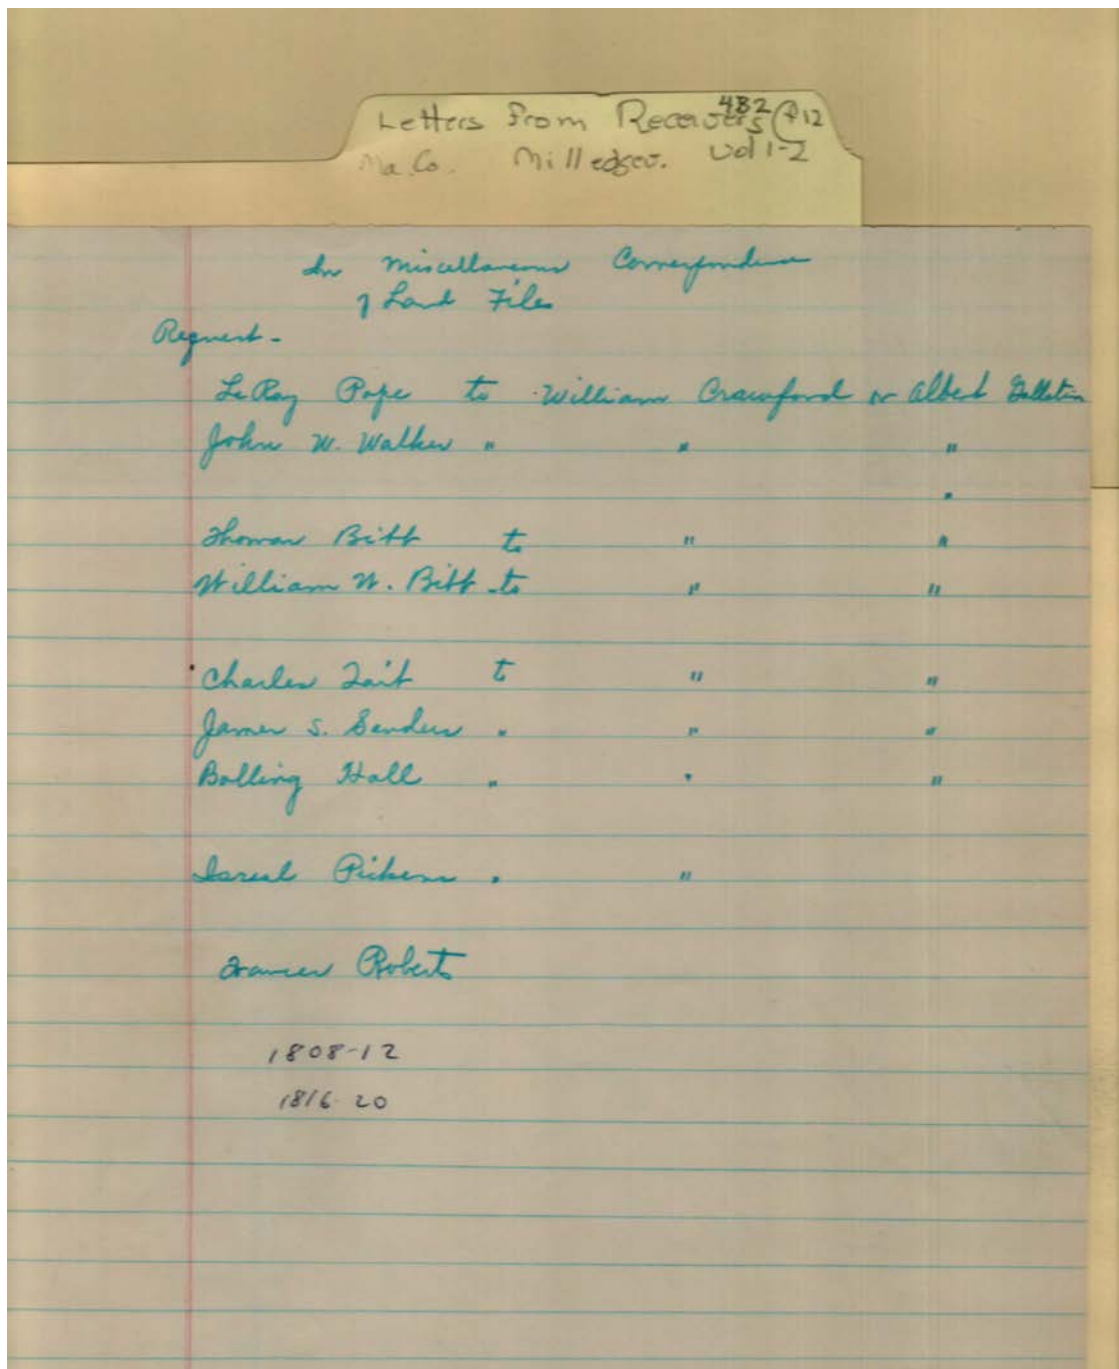 Letters from Receivers 4B2 P12
Ma. Co. Milledgev. Vol 1-2
In Miscellaneous Correspondence
of Land Files
Request-
LeRoy Pope to William Crawford or Albert Gallatin
John W. Walker " " "
"
Thomas Bibb to " "
William W. Bibb to " "
Charles Tait to " "
James S. Senders " " "
Bolling Hall " " "
Isreal Pickens " "
Frances Roberts
1808-12
1816-20